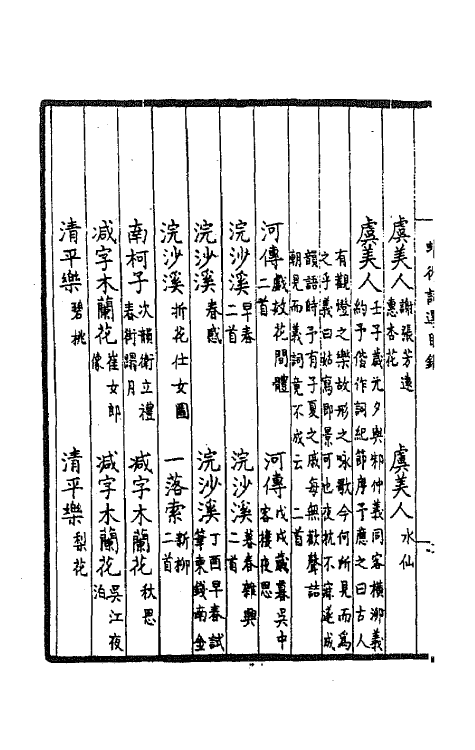 詞選目錄
虞美人 謝張芳遠惠杏花
虞美人 水仙
虞美人 壬子歲元夕與邾仲義同客橫泖義約予偕作詞紀節序予應之曰古人
有觀燈之樂故形之咏歌今何所見而為
之乎義曰姑寫即景可也夜枕不寐遂成
韻語時予有子夏之戚每無歡聲詰
朝見而義詞竟不成云 二首
河傳 戲效花間體二首
河傳 戊戌歲暮吳中客樓夜思
浣沙溪 早春二首
浣沙溪 暮春雜興二首
浣沙溪 春感
浣沙溪 丁酉早春試筆柬錢南金
浣沙溪 折花仕女圖
一落索 新柳
南柯子 次韻衛立禮春街踢月
减字木蘭花 秋思
减字木蘭花 崔女郎像
减字木蘭花 吳江夜泊
清平樂 碧桃
清平樂 梨花